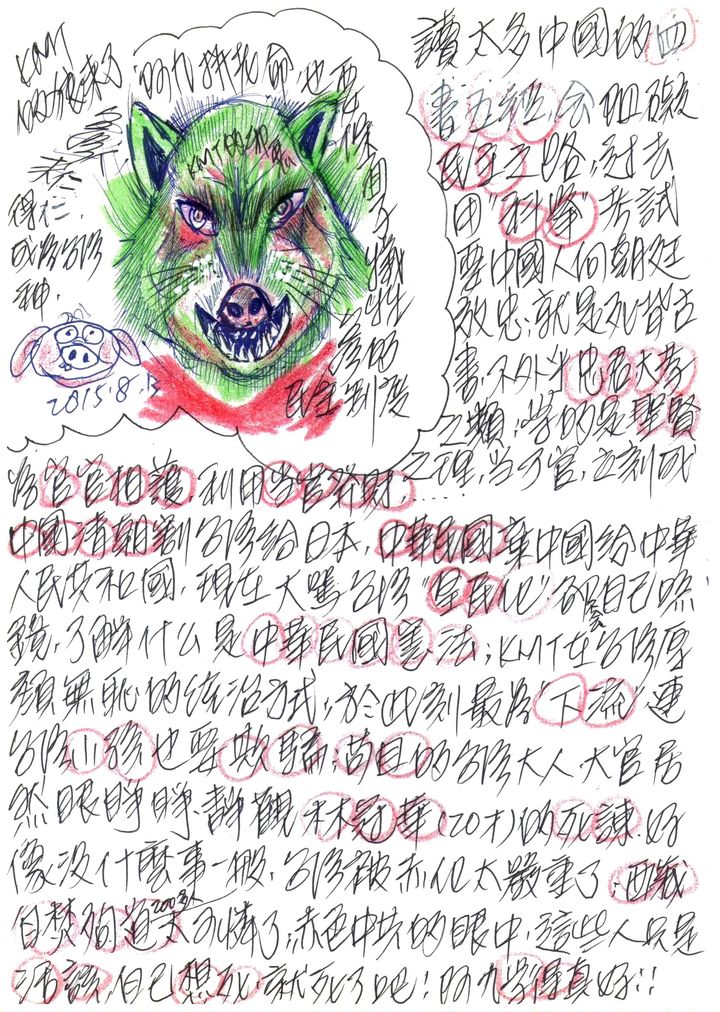 KMT
的狼來了,阿九拼老命也要
保用了
犧牲
民主制度
KMT的狼
得仁,
成為台灣
種.
2015.8.
讀太多中國的四
書五經,會阻礙
民主之路,過去
用"科舉"考試
要中國人向朝廷
效忠;就是死背古
書,不外乎忠君大孝
之類,學的是聖賢
之理,當了官,立刻成
為官官相護,利用當官發財,......
中國清朝割台灣給日本,中華民國 中國給中華
人民共和國,現在大罵台灣"皇民化",卻自己
了解什么是中華民國憲法;KMT在台灣厚
顏無恥的統治方式,於此刻最為"下流"連
台灣小孩也要欺騙;苟且的台灣大人大官居
然眼睜睜靜觀林冠華(20才)的死諫.好
像沒什麼事一般,台灣被赤化太嚴重了,西藏
自焚殉道 200多人 可憐了,赤色中共的眼中,這些人只是
活該,自己想死,就死了吧!阿九學得真好!!